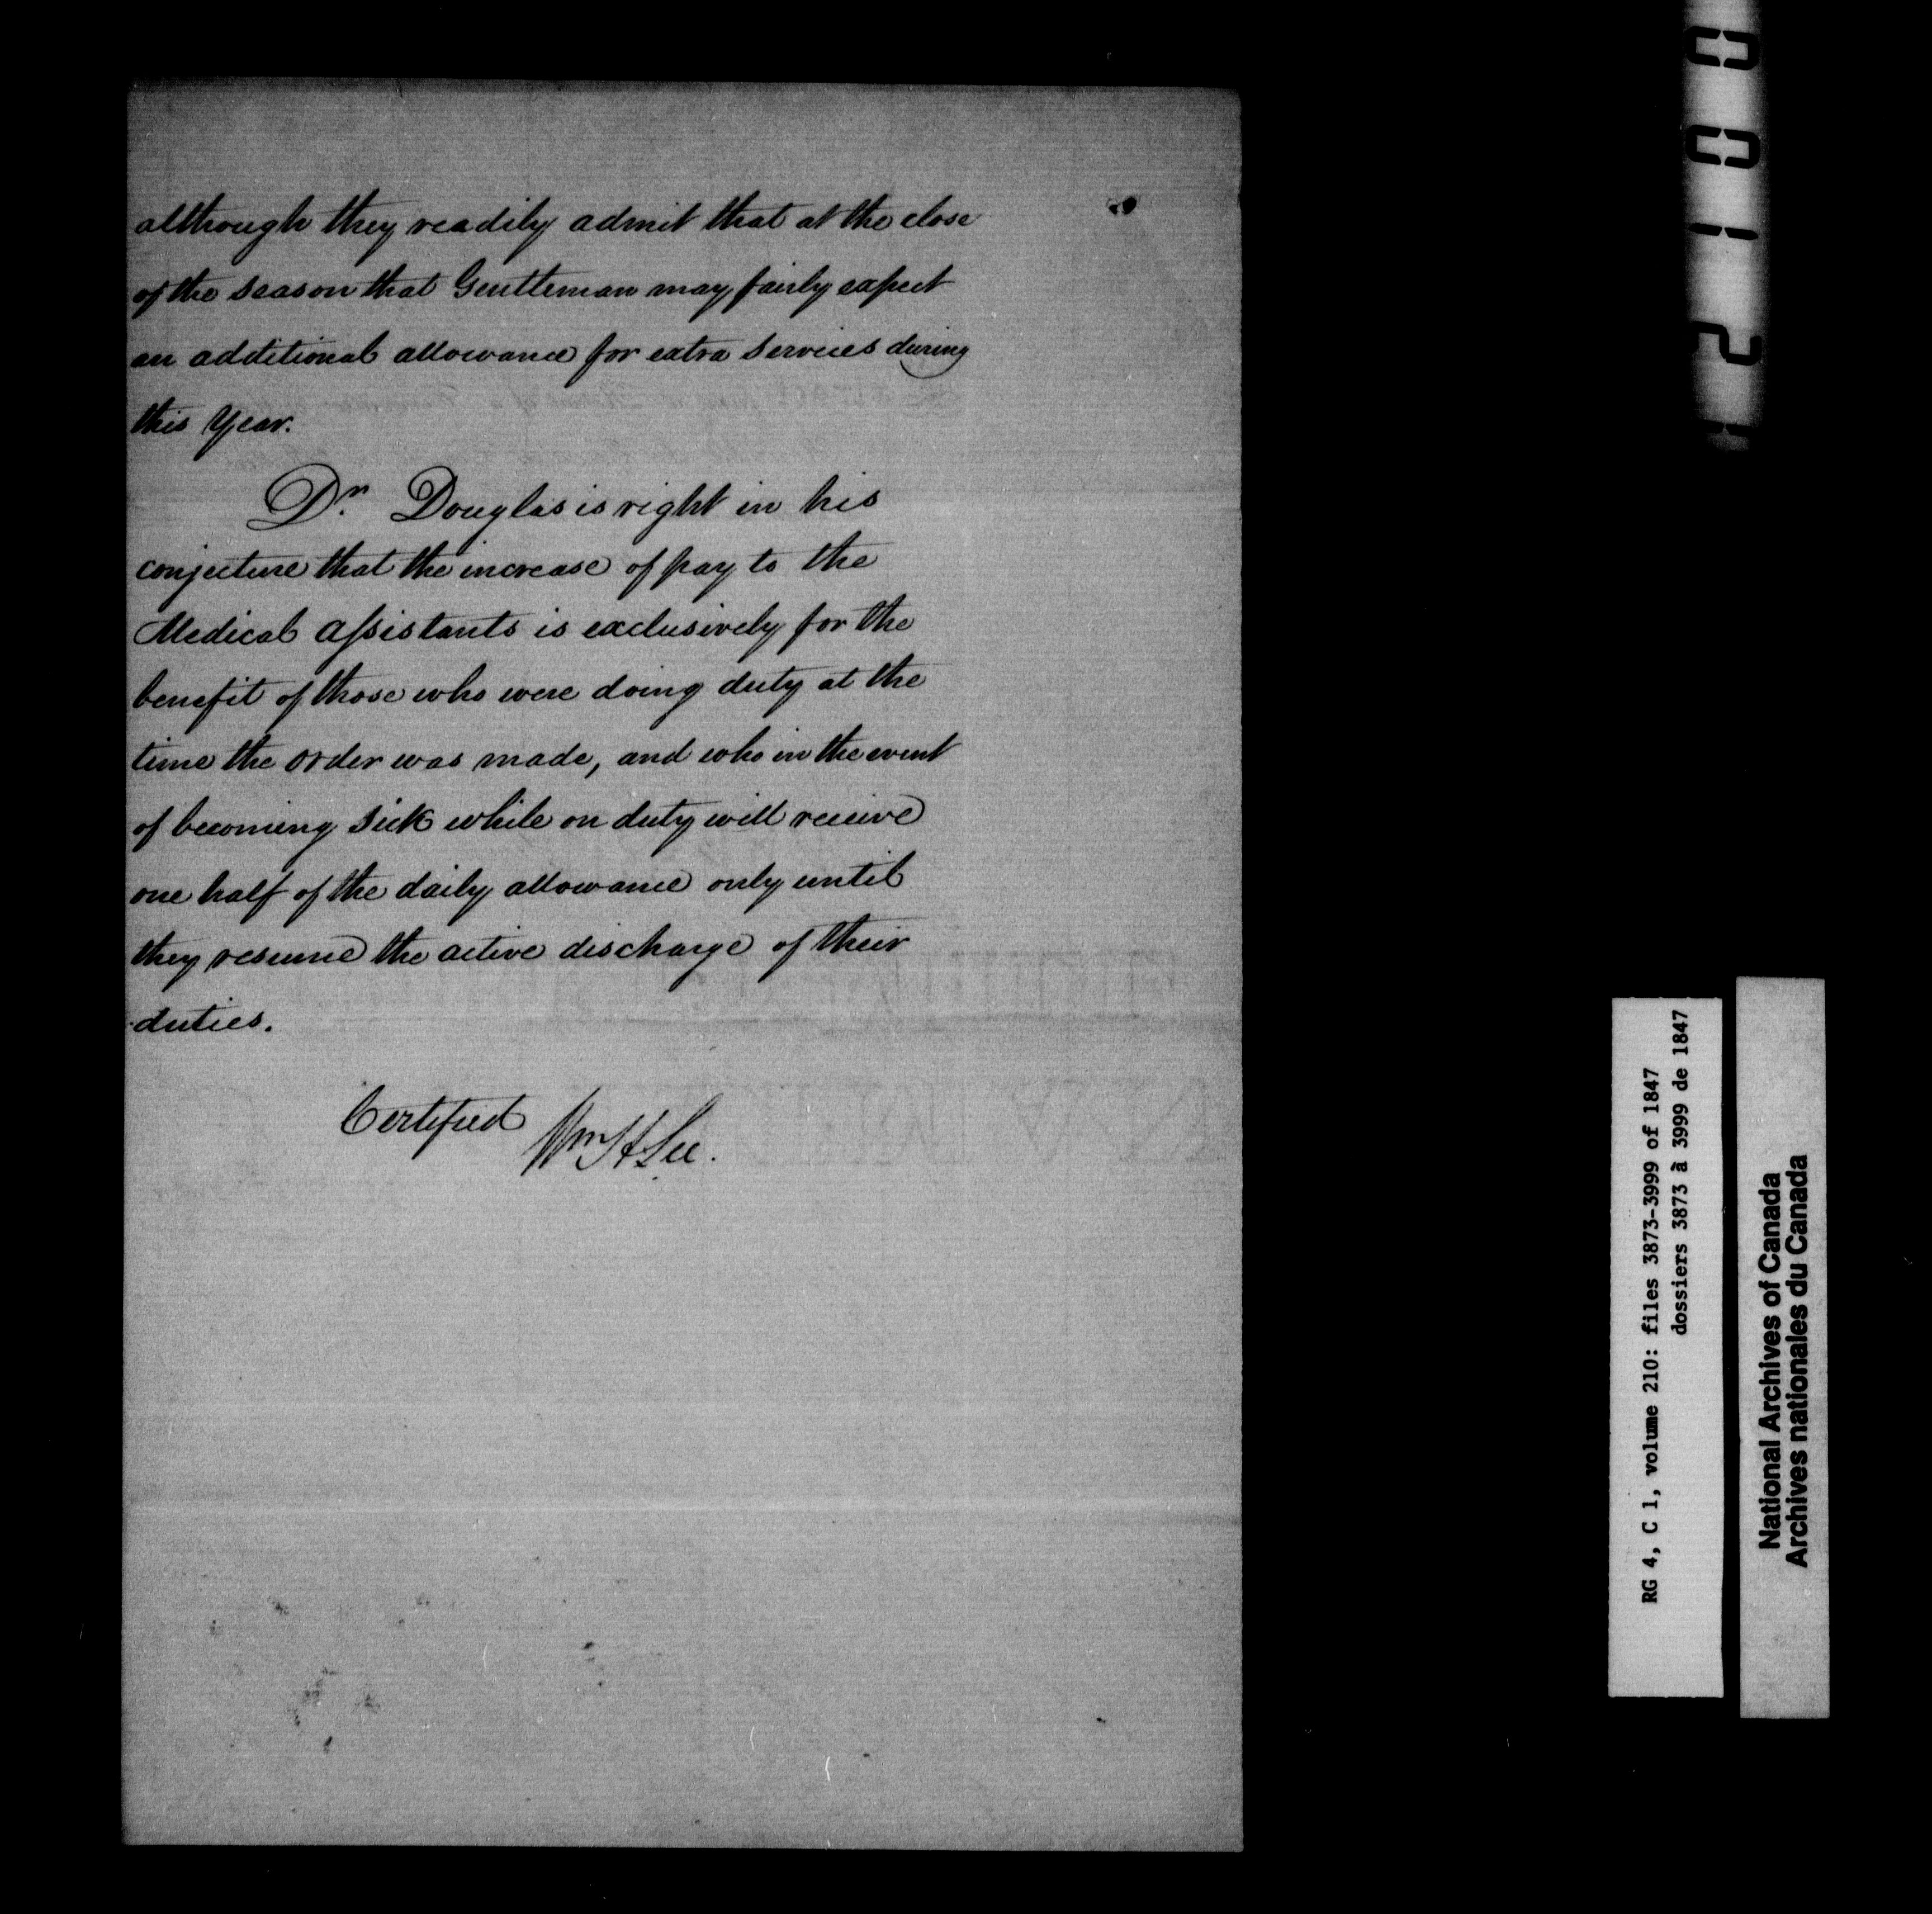 although they readily admit that at the close
of the season that Gentleman may fairly expect
an additional allowance for extra services during
this Year.
Dr. Douglas is right in his
conjecture that the increase of pay to the
Medical Assistants is exclusively for the
benefit of those who were doing duty at the
time the order was made, and who in the event
of becoming sick while on duty will receive
one half of the daily allowance only until
they resume the active discharge of their
duties.
Certified Wm H Lee.
RG 4, C 1, volume 210: files 3873-3999 of 1847
dossiers 3873 à 3999 de 1847
National Archives of Canada
Archives nationales du Canada